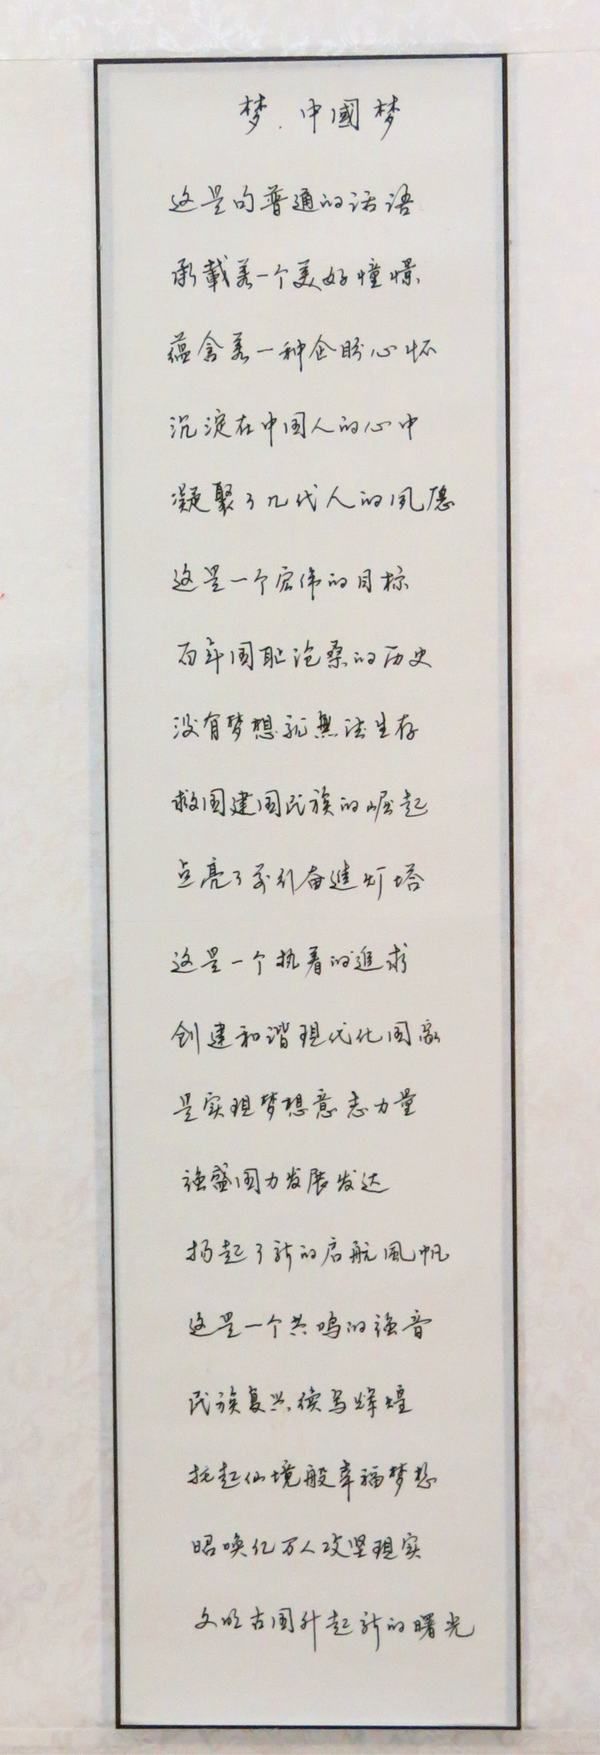 梦.中國梦
这是句普通的话语
承載着一个美好憧憬
蕴含着一种企盼心怀
沉淀在中国人的心中
凝聚了几代人的夙愿
这是一个宏伟的目标
百年国耻沧桑的历史
没有梦想就無法生存
救国建国民族的崛起
点亮了前行奋進灯塔
这是一个执着的追求
创建和谐现代化国家
是实现梦想意志力量
强盛国力发展发达
扬起了新的启航風帆
这是一个共鸣的强音
民族复兴续写辉煌
托起仙境般幸福梦想
昭唤亿万人攻坚现实
文明古国升起新的曙光